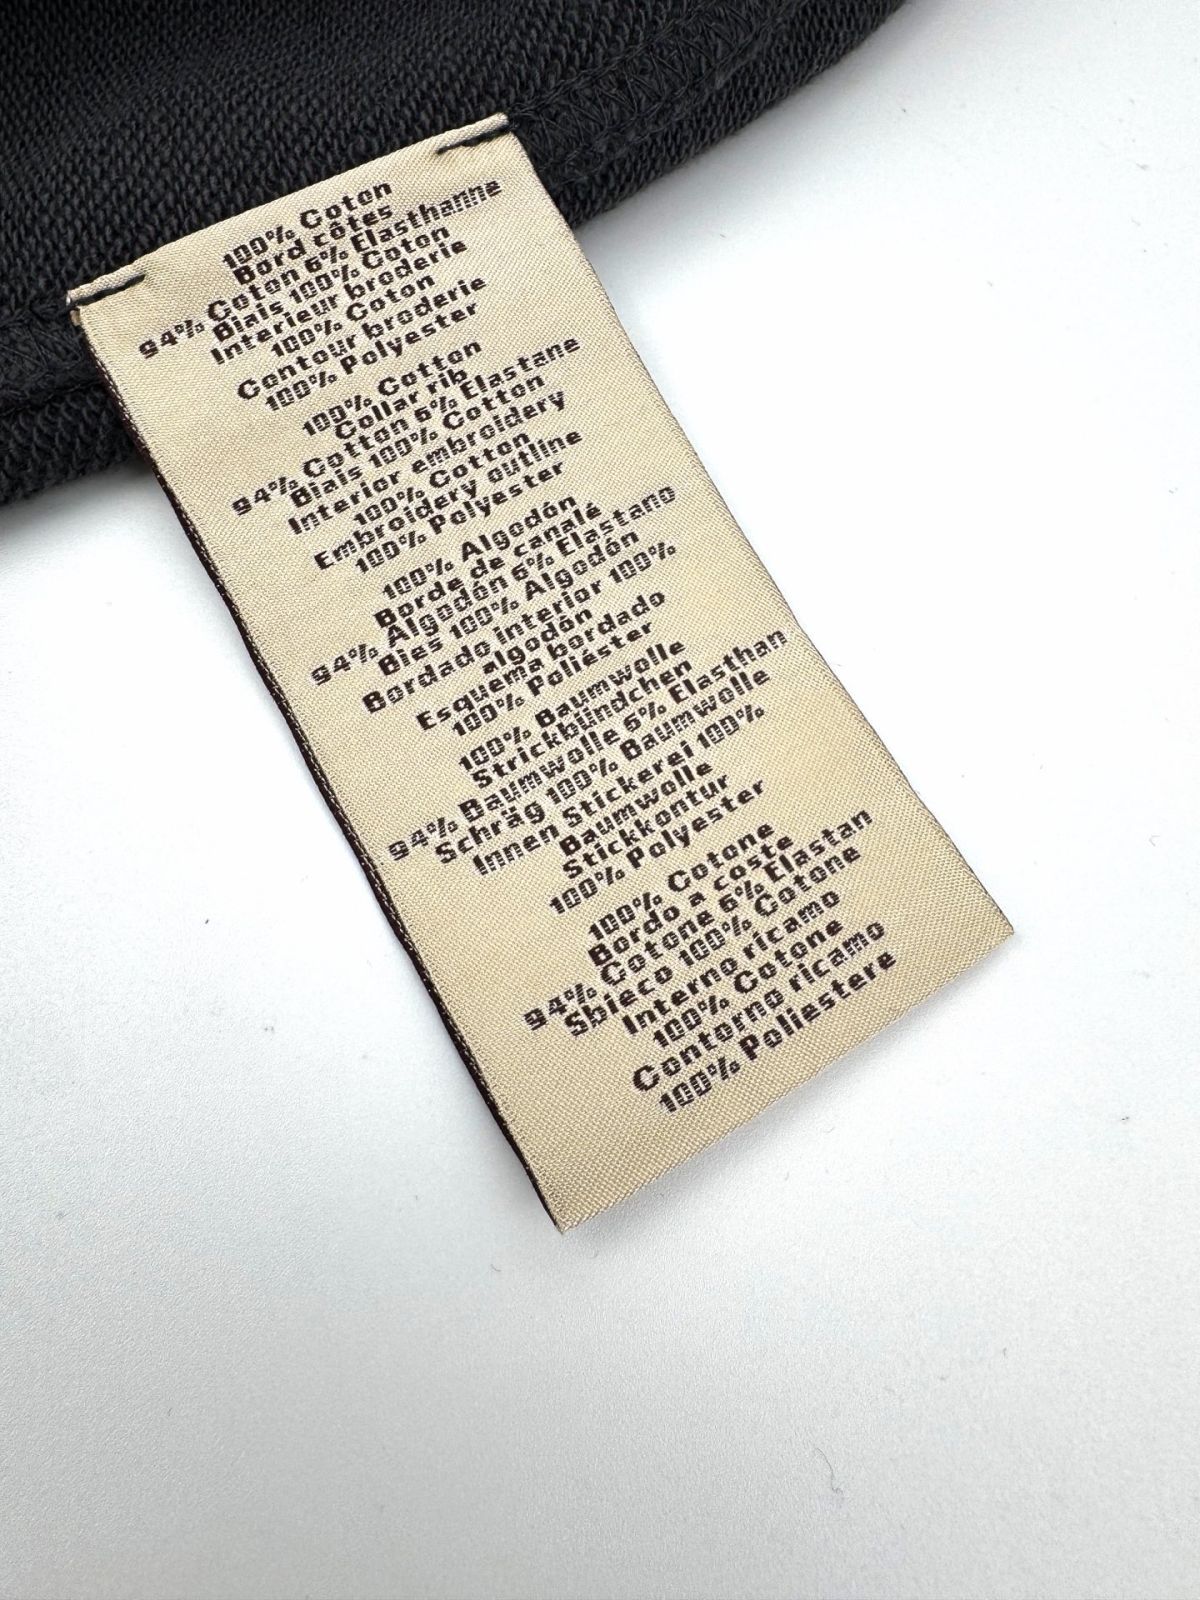 100% Coton
Bord côtes
94% Coton 6% Elasthanne
Biais 100% Coton
Interieur broderie
100% Coton
Contour broderie
100% Polyester
100% Cotton
Collar rib
94% Cotton 6% Elastane
Biais 100% Cotton
Interior embroidery
100% Cotton
Embroidery outline
100% Polyester
100% Algodón
Borde de canalé
94% Algodón 6% Elastano
Bies 100% Algodón
Bordado interior 100%
algodón
Esquema bordado
100% Poliéster
100% Baumwolle
Strickbündchen
94% Baumwolle 6% Elasthan
Schräg 100% Baumwolle
Innen Stickerei 100%
Baumwolle
Stickkontur
100% Polyester
100% Cotone
Bordo a coste
94% Cotone 6% Elastan
Sbieco 100% Cotone
Interno ricamo
100% Cotone
Contorno ricamo
100% Poliestere